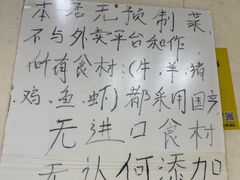 本店无预制菜
不与外卖平台和作
所有食材:(牛、羊、猪
鸡、鱼、虾)都采用国产
无进口食材
无认何添加